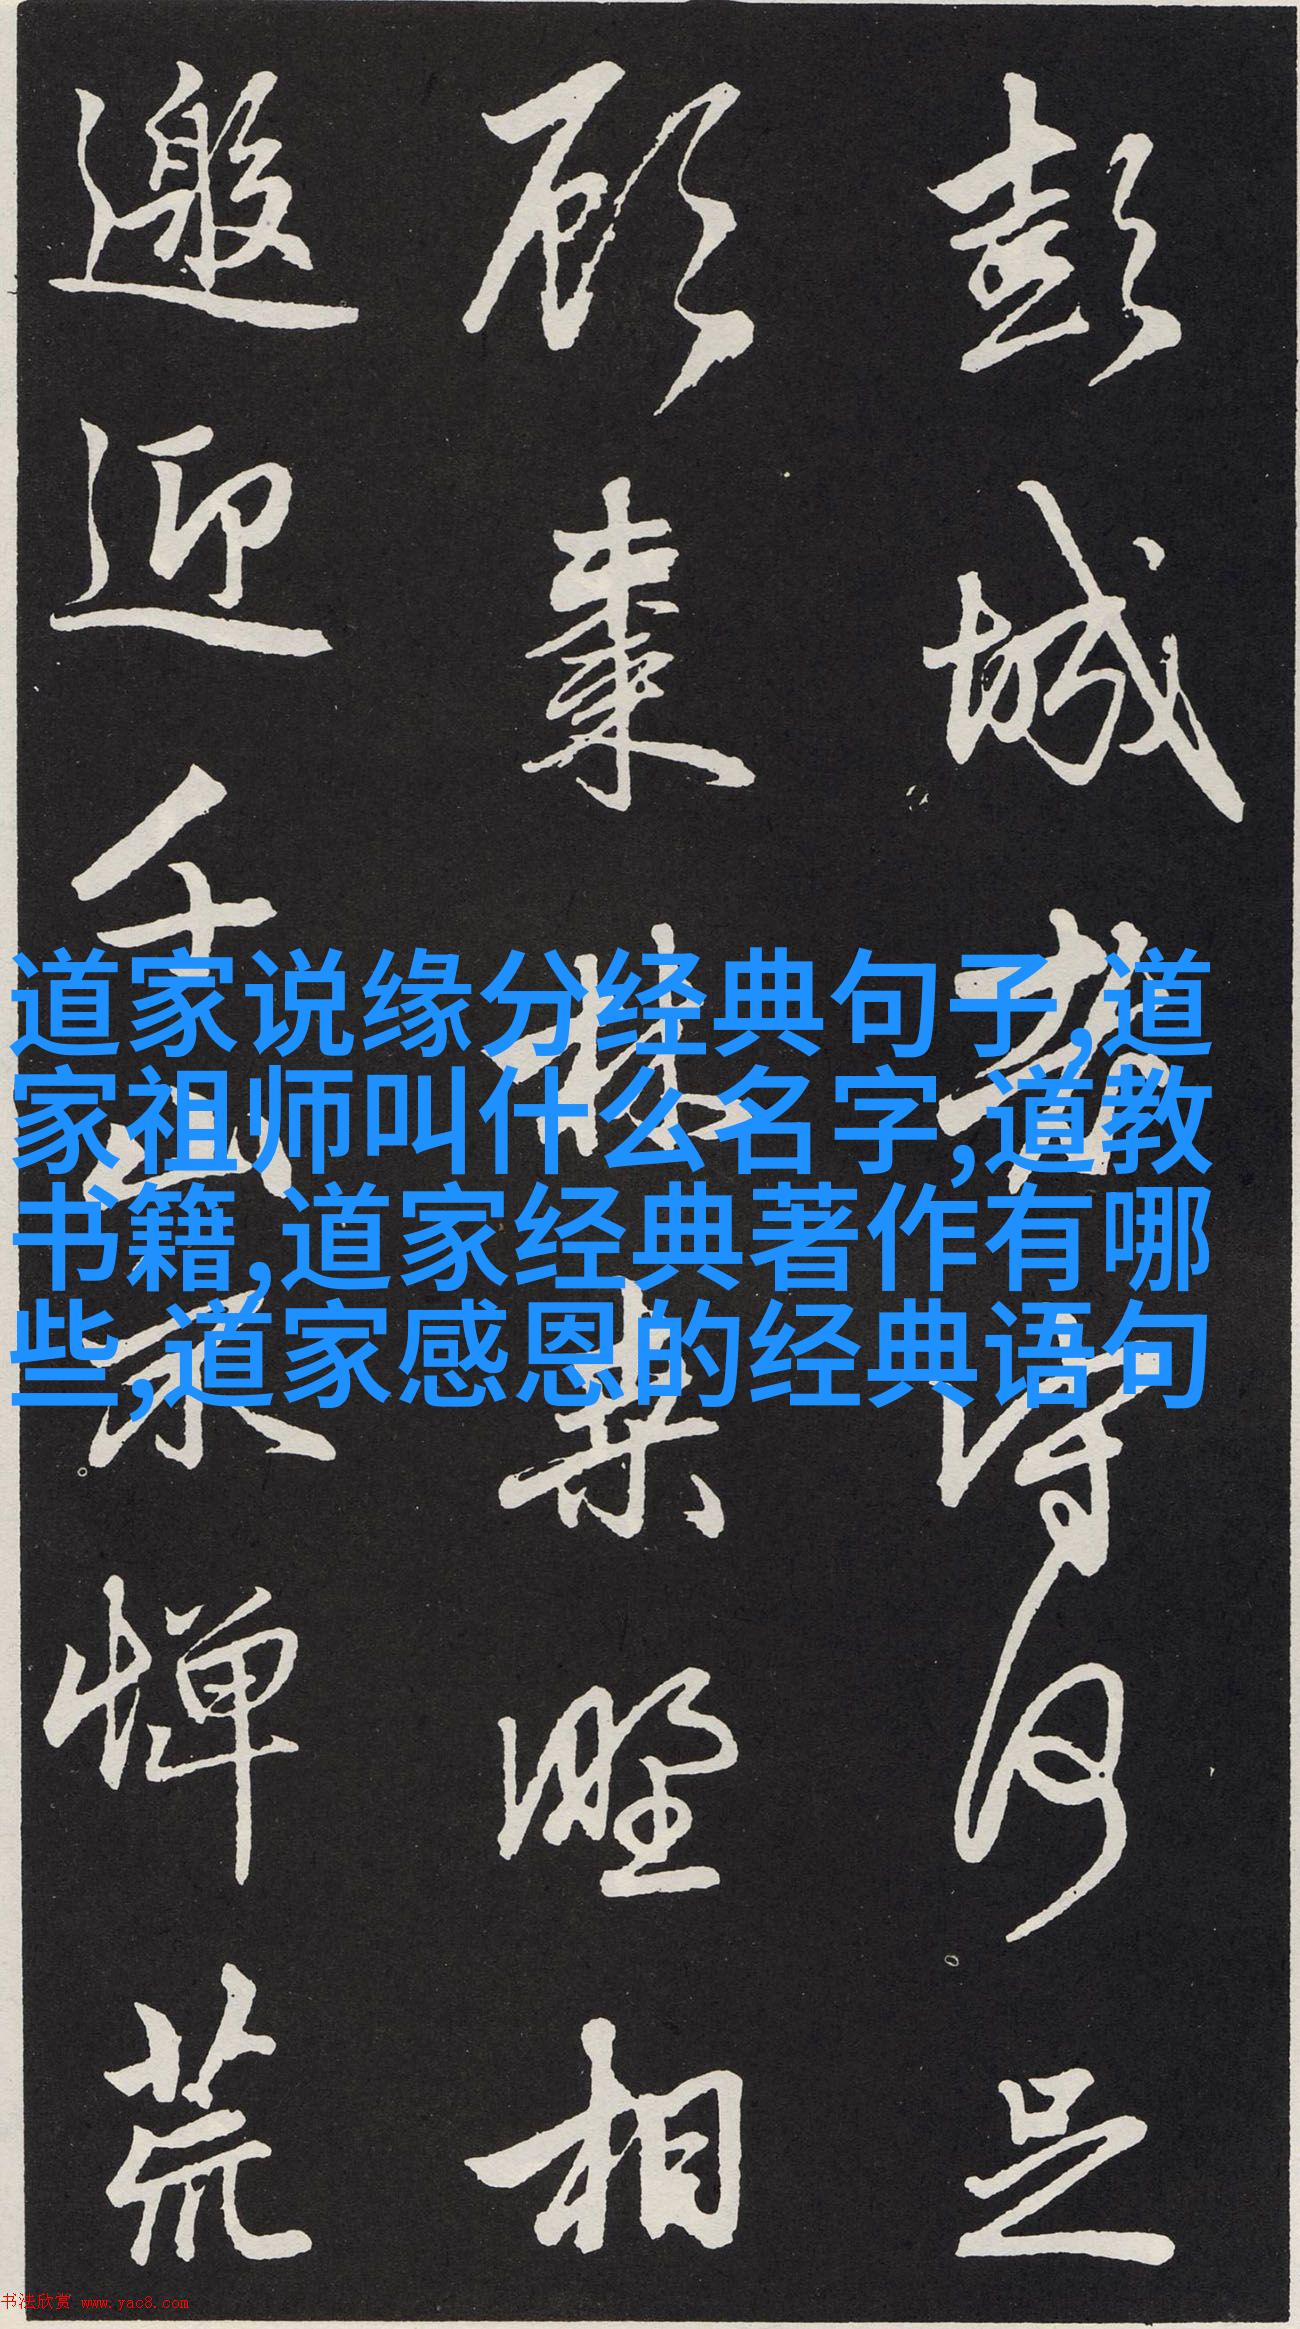 彭城昔時何足
顧棗林桑野相
邀迎千山不憚荒
道家说缘分经典句子,道
家祖师叫什么名字,道教
书籍,道家经典著作有哪
些,道家感恩的经典语句
书法欣赏 www.yac8.com